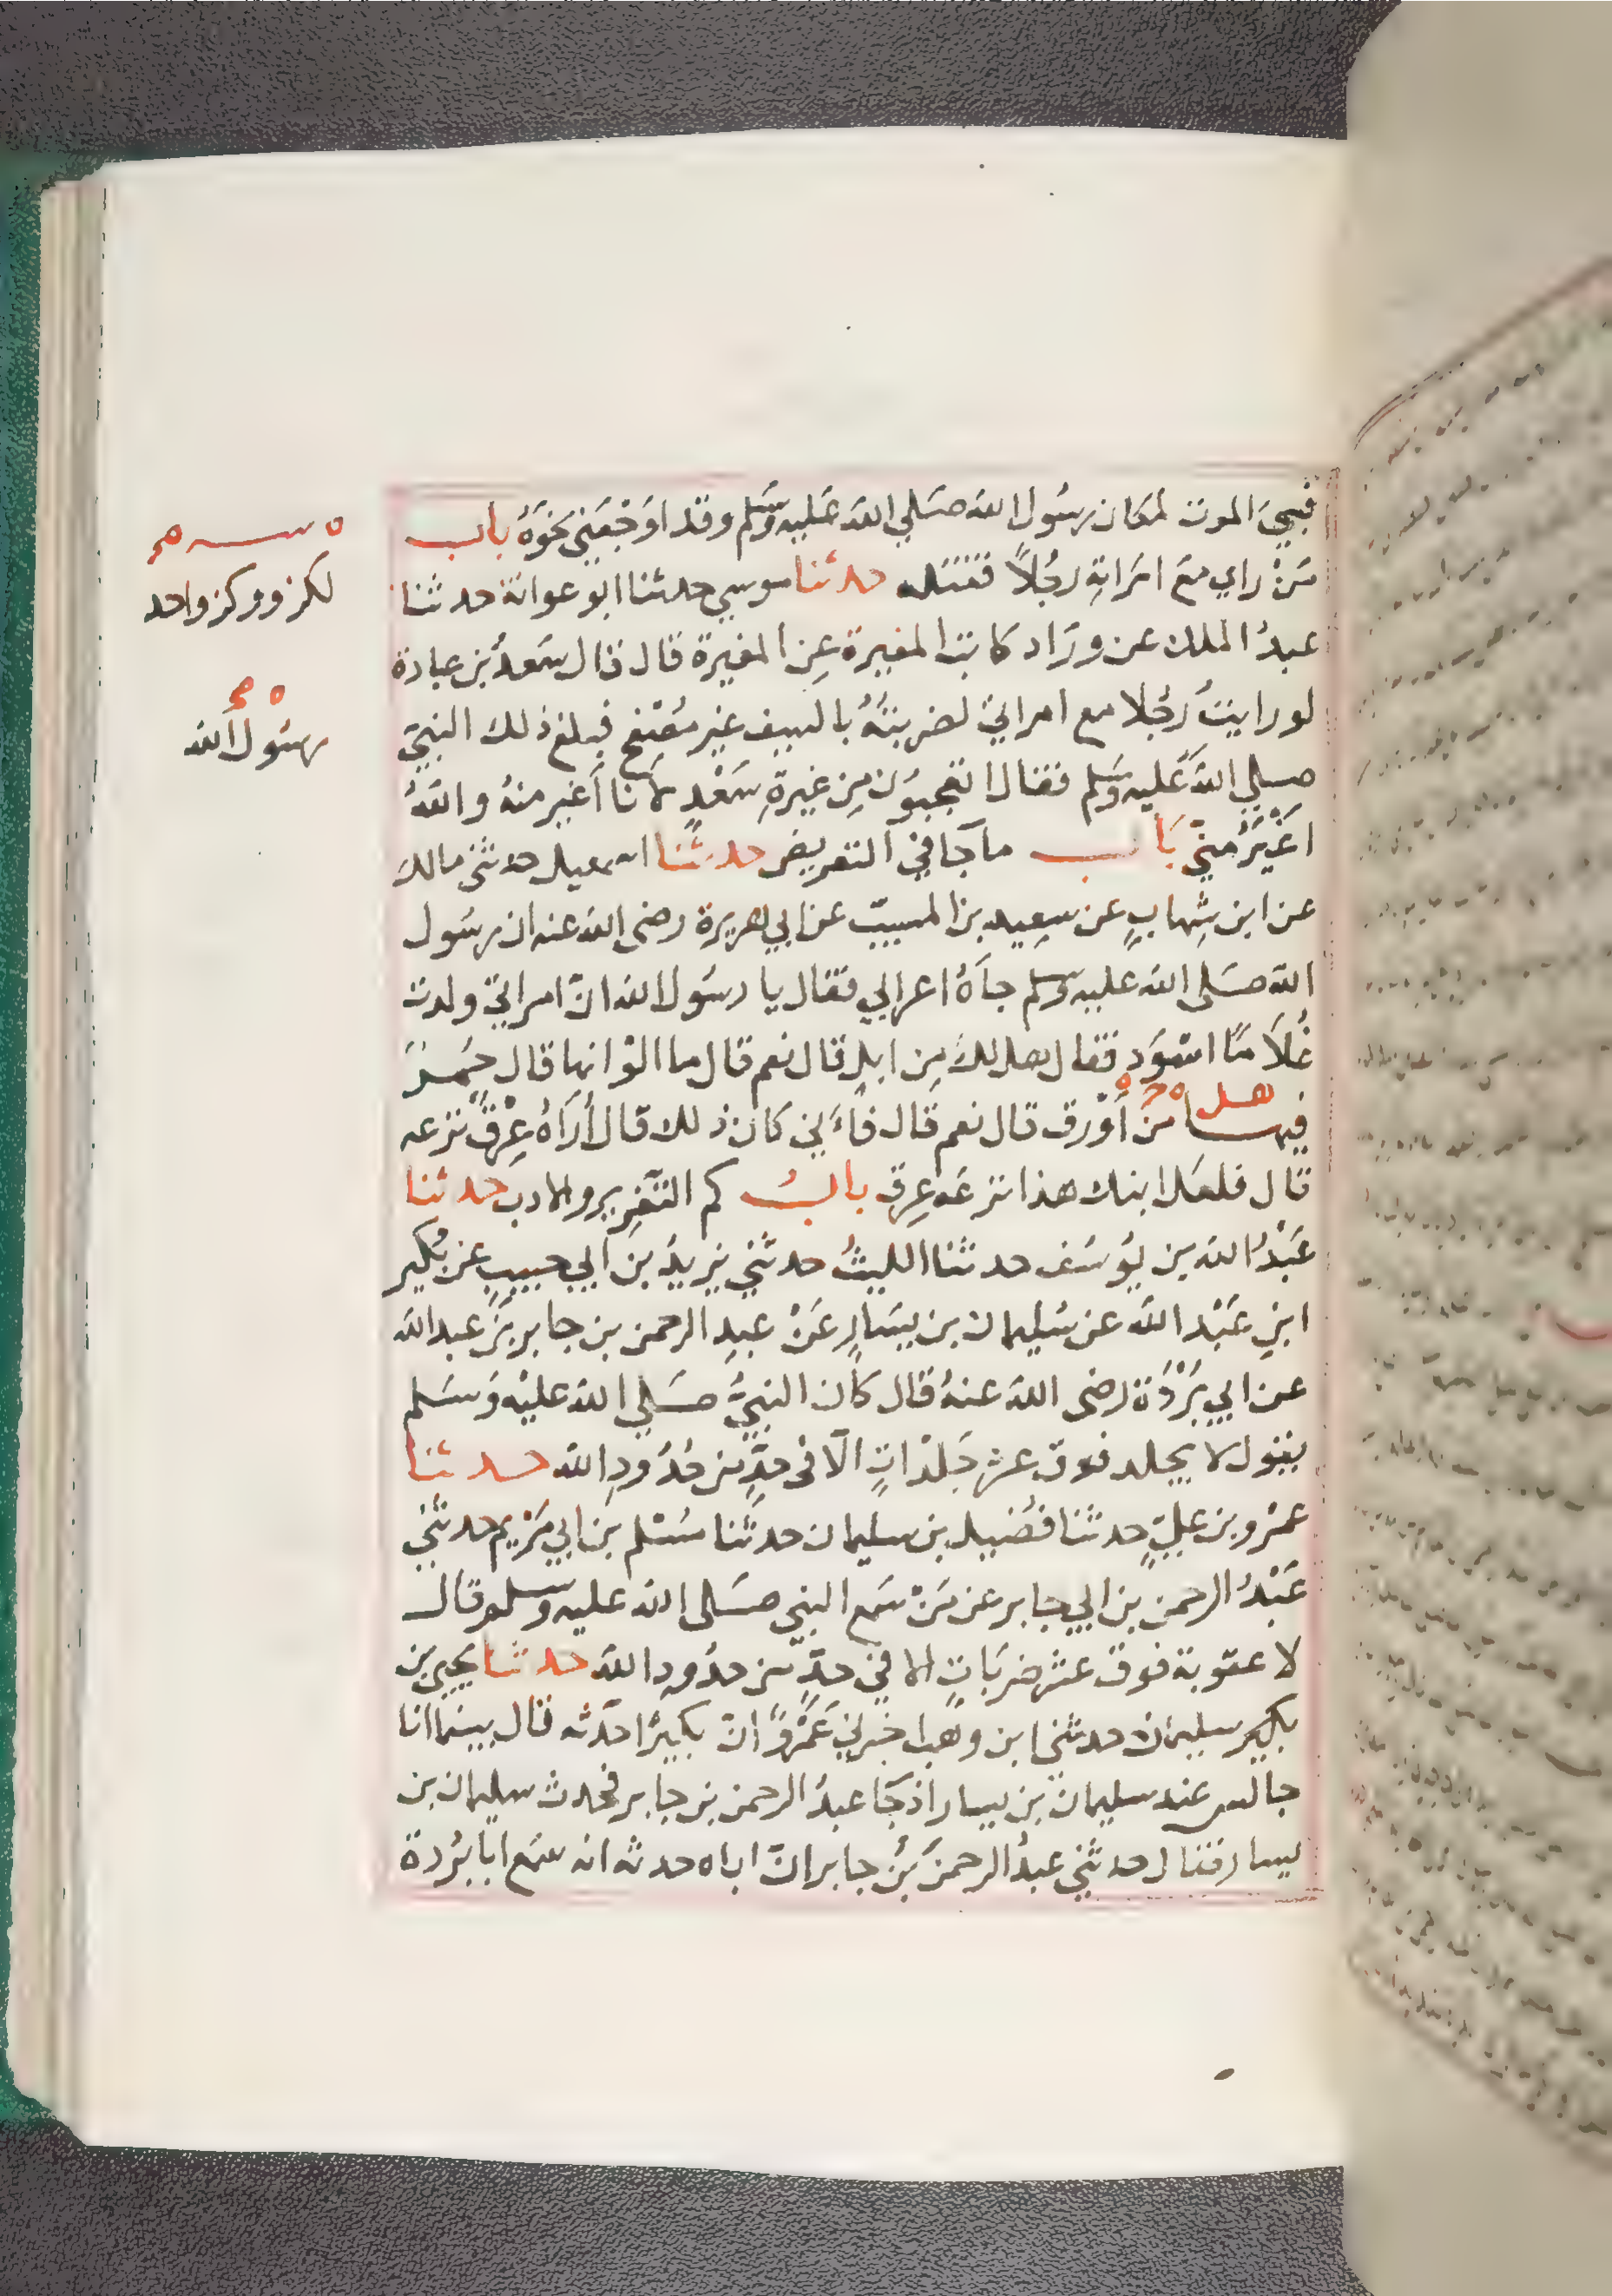 فبي الموت لمكان رسُول الله صَلي الله عَليه وسَلم وقد اوجَعَني نحوَهُ باب
مَنْ راي مَعَ امرَاتِه رجُلاً فقتله حدثنا موسي حدثنا ابو عوانة حدثنا
عبدُ الملك عن ورَاد كاتب المغيرة عِن المغيرة قال قال سَعدُ بن عبادة
لو رايتُ رجُلا مع امراتي لضربتهُ بالسيف غير مصْفح فبلغ ذلك النبيّ
صلي الله عَليه وسَلم فقال اتعجبوُن مِن غيرة سَعْدٍ لانا أغير منهُ واللهُ
اغيَرُ منيّ بَاب ما جَآ في التعريض حدثنا اسمعيل حدثني مالك
عن ابن شِهابٍ عن سِعيد بن المسيب عن ابي هريرة رضى الله عنه ان رسُول
الله صَلى الله عليه وسَلم جآهُ اعرابي فقال يا رسُول الله انّ امراتي ولدت
غُلاَمًا اسْوَد فقال هل لكَ مِن ابلٍ قال نعم قال ما الوْانها قال حُمرٌ
هل
فيها مِنْ أوْرق قال نعم قال فاَني كان ذلك قال أُرَاهُ عِرْقٌ نزعه
قال فلعَل ابنك هذا نزعَه عِرق بابُ كم التَعْزِير والادب حدثنا
عَبْدُ الله بن يوُسَف حدثنا الليثُ حدثني يزيدُ بن ابي حبيبٍ عن بُكير
ابنِ عَبْد الله عن سُليمان بن يسَارٍ عَنْ عبدِ الرحمن بن جابر بن عبد الله
عن ابي بُرْدَة رضى الله عنهُ قال كان النبيُّ صَلي الله عليْه وَسَلم
يقول لا يجلد فوق عشر جَلدْاتٍ الّا فى حدٍّ من حُدُودِ الله حدثنا
عمْرو بن عليّ حدثنا فُضَيل بن سليمان حدثنا مسُلم بن ابي مَرْيم حدثنّي
عَبْدُ الرحمن بن ابي جابر عن مَنْ سَمع النبي صَلى الله عليه وسلم قال
لا عقوبة فوق عشر ضرَبَاتٍ الا في حدٍّ من حدُود الله حدثنا يحيي بن
بكير سليمان حدثني ابن وهب اخبرني عَمْروٌ انّ بكيرًا حَدّثه قال بينما انا
جالس عند سليمان بن يسار اذ جَآ عبدُ الرحمن بن جابر فحدث سليمان بن
يسار فقال حدثني عبدُ الرحمن بنُ جابر انّ اباه حدثه انه سَمع ابا بُردة
ه س ه
لكز ووكز واحد
ه
رسُول الله